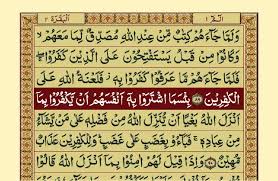 الٓمّٓ ١
البقرة ٢
وَلَمَّا جَآءَهُمْ كِتٰبٌ مِّنْ عِنْدِ اللّٰهِ مُصَدِّقٌ لِّمَا مَعَهُمْ
وَكَانُوْا مِنْ قَبْلُ يَسْتَفْتِحُوْنَ عَلَى الَّذِيْنَ كَفَرُوْا
فَلَمَّا جَآءَهُمْ مَّا عَرَفُوْا كَفَرُوْا بِهٖ فَلَعْنَةُ اللّٰهِ عَلَى
الْكٰفِرِيْنَ ۝٨٩ بِئْسَمَا اشْتَرَوْا بِهٖٓ اَنْفُسَهُمْ اَنْ يَّكْفُرُوْا بِمَآ
اَنْزَلَ اللّٰهُ بَغْيًا اَنْ يُّنَزِّلَ اللّٰهُ مِنْ فَضْلِهٖ عَلٰى مَنْ يَّشَآءُ
مِنْ عِبَادِهٖ فَبَآءُوْ بِغَضَبٍ عَلٰى غَضَبٍ وَلِلْكٰفِرِيْنَ عَذَابٌ
مُّهِيْنٌ ۝٩٠ وَاِذَا قِيْلَ لَهُمْ اٰمِنُوْا بِمَآ اَنْزَلَ اللّٰهُ قَالُوْا